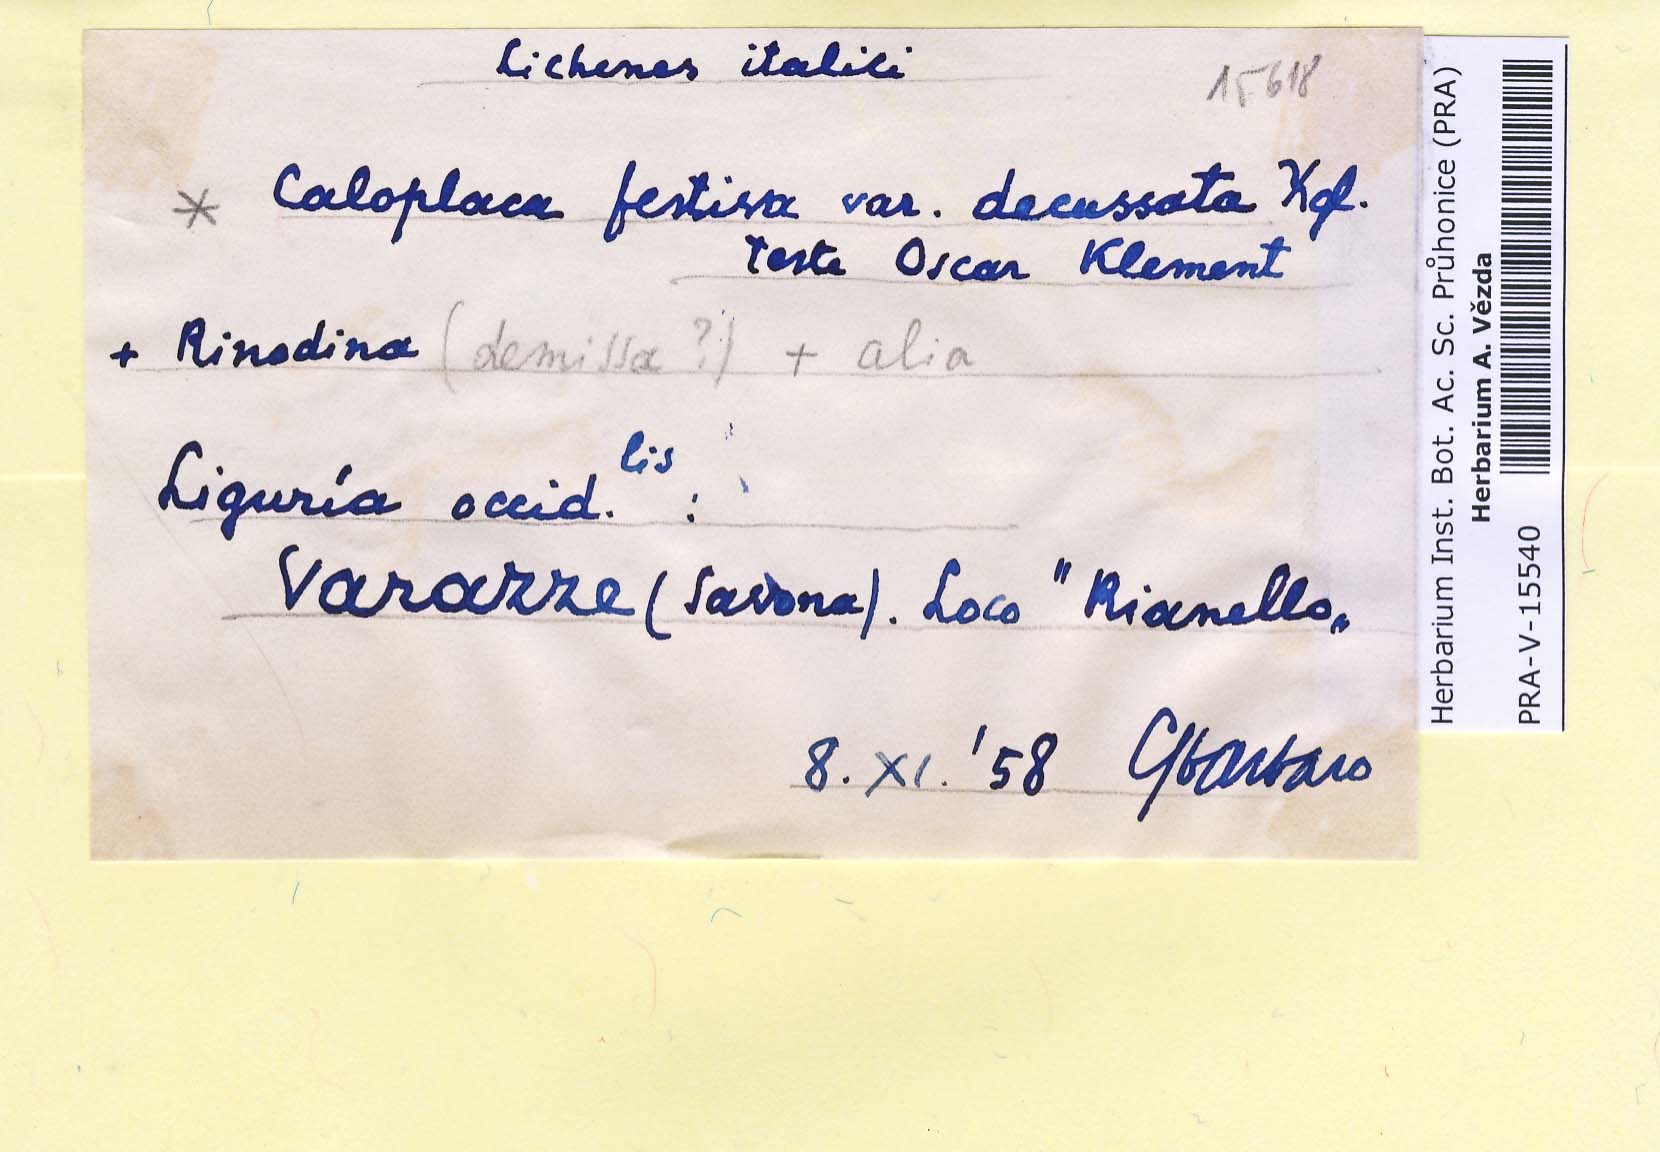 Lichenes italici
15618
* Caloplaca festiva var. decussata
Teste Oscar Klement
+ Rinodina (demissa?) + alia
Liguria occid.lis :
Varazze (Savona). Loco "Rianello„
8. XI. '58 GBarbaro
Herbarium Inst. Bot. Ac. Sc. Průhonice (PRA)
Herbarium A. Vězda
PRA-V-15540